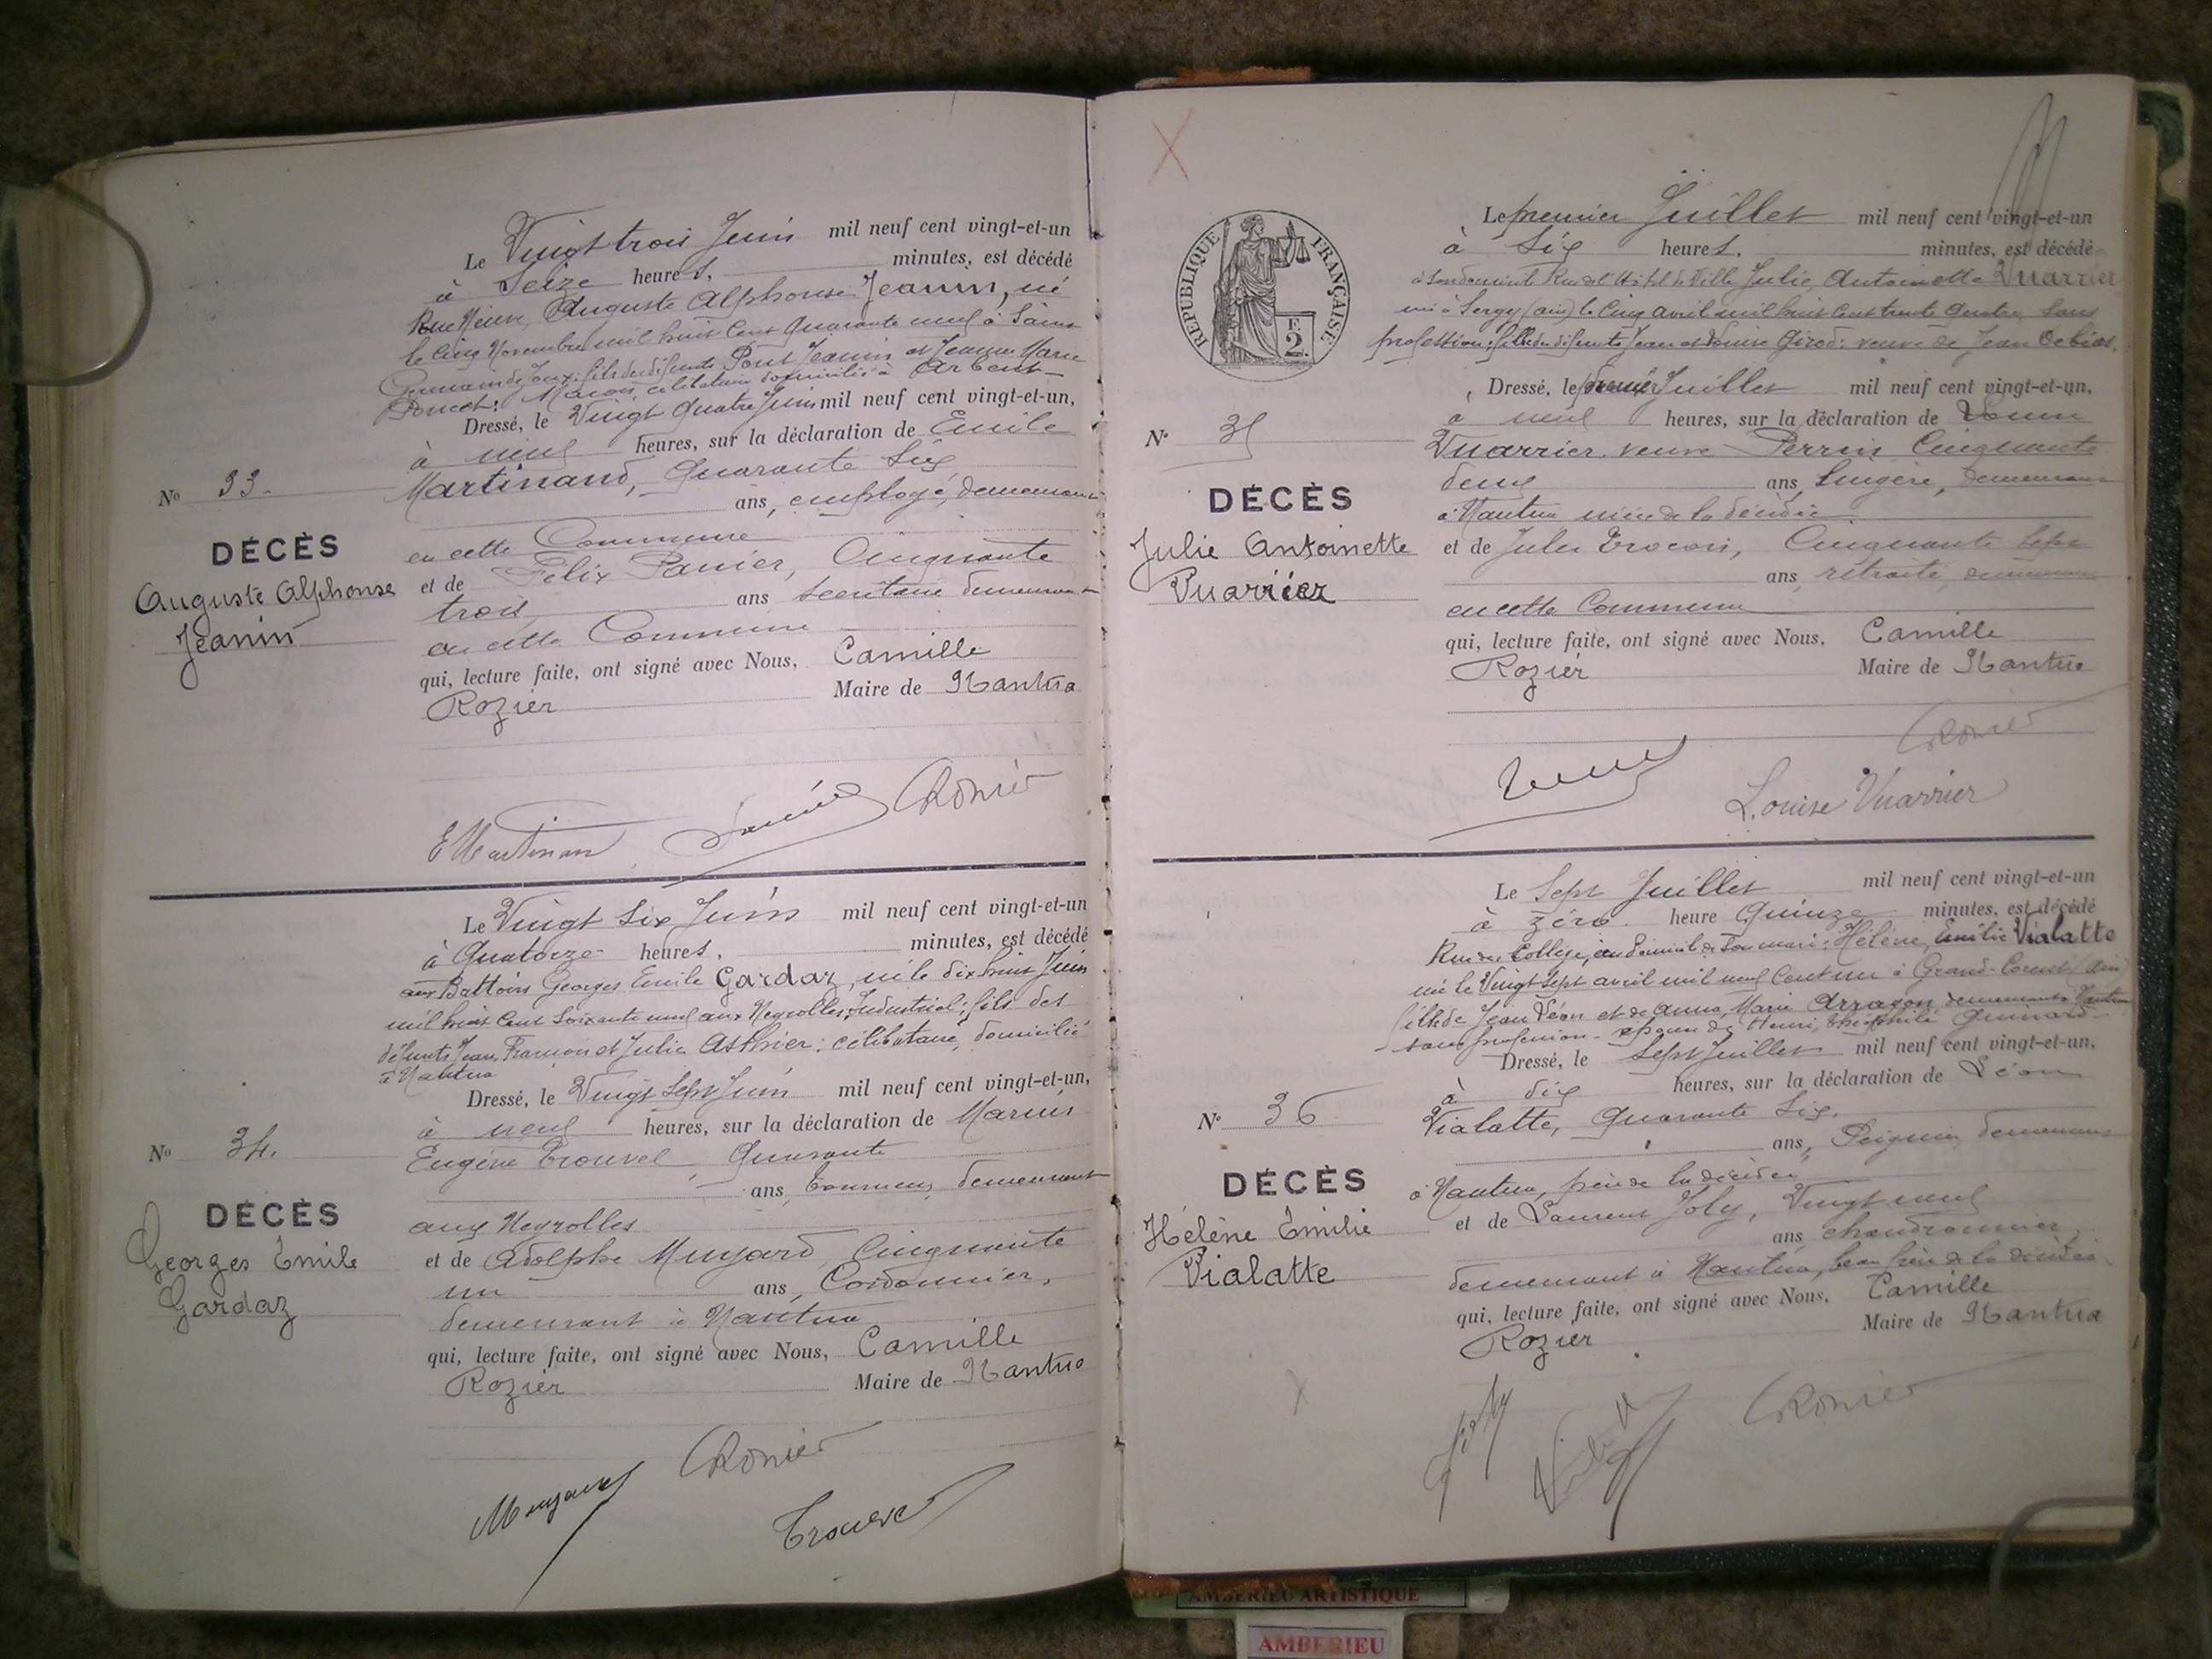 Le Vingt trois Juin mil neuf cent vingt-et-un
à Seize heures, minutes, est décédé
Rue Neuve, Auguste Alphonse Jeanin, né
le Cinq Novembre mil huit Cent Quarante neuf à Saint
Germain de Joux, fils des défunts Jeanin et Jeanne Marie
Poncet; célibataire domicilié à Arbent
Dressé, le Vingt Quatre Juin mil neuf cent vingt-et-un,
à neuf heures, sur la déclaration de Emile
Martinand, Quarante Six
ans, employé, demeurant
en cette Commune
et de Félix Panier, Cinquante
trois ans secrétaire demeurant
en cette Commune
qui, lecture faite, ont signé avec Nous, Camille
Rozier Maire de Nantua
No 33.
DÉCÈS
Auguste Alphonse
Jeanin
E Martinand Panier CRozier
Le Vingt Six Juin mil neuf cent vingt-et-un
à Quatorze heures, minutes, est décédé
aux Battoirs Georges Emile Gardaz, né le dix huit Juin
mil huit Cent Soixante neuf aux Neyrolles, Industriel; fils des
défunts Jean François et Julie Asthier; célibataire, domicilié
à Nantua
Dressé, le Vingt Sept Juin mil neuf cent vingt-et-un,
à neuf heures, sur la déclaration de Marius
Eugène Trouvel, Quarante
ans, Tourneur, demeurant
aux Neyrolles
et de Adolphe Munard, Cinquante
un ans, Cordonnier,
demeurant à Nantua
qui, lecture faite, ont signé avec Nous, Camille
Rozier Maire de Nantua
No 34.
DÉCÈS
Georges Emile
Gardaz
CRozier
Trouvel
RÉPUBLIQUE FRANÇAISE
2
Le premier Juillet mil neuf cent vingt-et-un
à Six heures, minutes, est décédé
à son domicile Rue de l'Hôtel de Ville Julie Antoinette Vuarrier
né à Sergy (ain) le Cinq avril mil huit Cent trente Quatre, Sans
profession; fille des défunts Jean et Louise Girod; veuve de Jean
Dressé, le premier Juillet mil neuf cent vingt-et-un,
à neuf heures, sur la déclaration de
Vuarrier veuve Perrin Cinquante
deux ans, Lingère, demeurant
à Nantua nièce de la décédée
et de Jules Cinquante Sept
ans, retraité, demeurant
en cette Commune
qui, lecture faite, ont signé avec Nous, Camille
Rozier Maire de Nantua
No 35
DÉCÈS
Julie Antoinette
Vuarrier
CRozier
Louise Vuarrier
Le Sept Juillet mil neuf cent vingt-et-un
à zéro heure Quinze minutes, est décédé
Rue du Collège, au domicile de Son mari; Hélène, Emilie Vialatte
né le Vingt Sept avril mil neuf Cent un à Grand-Corent (Ain)
fille de Jean Léon et de Anna, Marie Arragon demeurant à Nantua
sans profession - épouse de Henri, Théophile
Dressé, le Sept Juillet mil neuf cent vingt-et-un,
à dix heures, sur la déclaration de Léon
Vialatte, Quarante Six.
ans, demeurant
à Nantua, père de la décédée
et de Laurent Joly, Vingt neuf
ans chaudronnier,
demeurant à Nantua, beau frère de la décédée
qui, lecture faite, ont signé avec Nous, Camille
Rozier Maire de Nantua
No 36
DÉCÈS
Hélène Emilie
Vialatte
Joly CRozier
AMBERIEU ARTISTIQUE
AMBERIEU